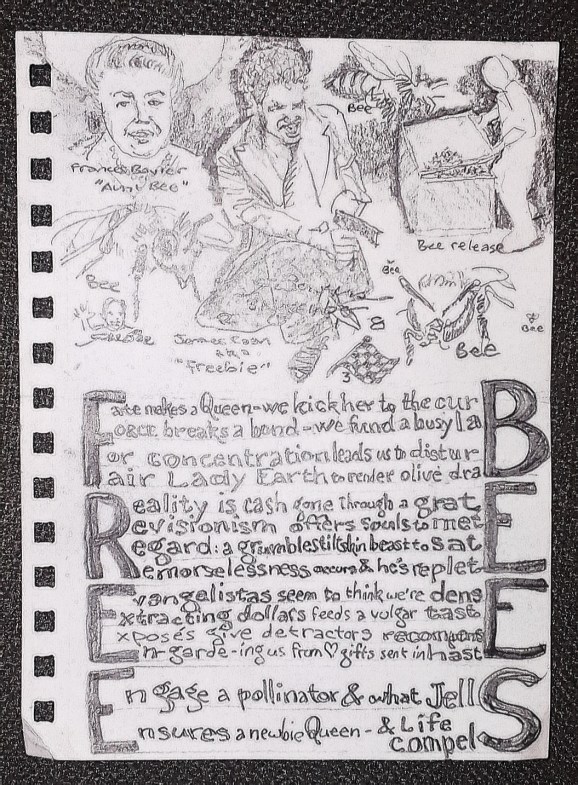 Bee
Frances Bavier
"Aunt Bee"
Bee release
Bee
Bee
& Bee
Coan
a.k.a.
"Freebie"
8
3
Bee
F ate makes a Queen - we kick her to the cur B
orce breaks a bond - we fund a busy la
or concentration leads us to distur
air Lady Earth to render olive dra
R eality is cash gone through a grat E
evisionism offers souls to met
egard: a grumblestiltskin beast to sat
emorselessness occurs & he's replet
E vangelistas seem to think we're dens E
xtracting dollars feeds a vulgar tast
xposés give detractors recompens
n-garde-ing us from ♡ gifts sent in hast
E ngage a pollinator & what Jell S
nsures a newbie Queen - & Life
compel